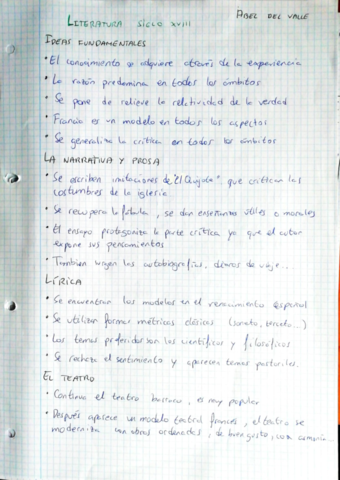 ABEL DEL VALLE
LITERATURA SIGLO XVIII
IDEAS FUNDAMENTALES
• El conocimiento se adquiere através de la experiencia
• La razón predomina en todos los ámbitos
• Se pone de relieve la relatividad de la verdad
• Francia es un modelo en todos los aspectos
• Se generaliza la crítica en todos los ámbitos
LA NARRATIVA Y PROSA
• Se escriben imitaciones de "El Quijote" que critican las
costumbres de la iglesia
• Se recupera la fábula, se dan enseñanzas útiles o morales
• El ensayo protagoniza la parte crítica ya que el autor
expone sus pensamientos
• Tambien surgen las autobiografías, diarios de viaje...
LÍRICA
• Se encuentran los modelos en el renacimiento español
• Se utilizan formas métricas clásicas (soneto, terceto...)
• Los temas preferidos son los científicos y filosóficos
• Se rechaza el sentimiento y aparecen temas pastoriles.
EL TEATRO
• Continua el teatro barroco, es muy popular
• Después aparece un modelo teatral francés, el teatro se
moderniza con obras ordenadas, de buen gusto, con armonía...